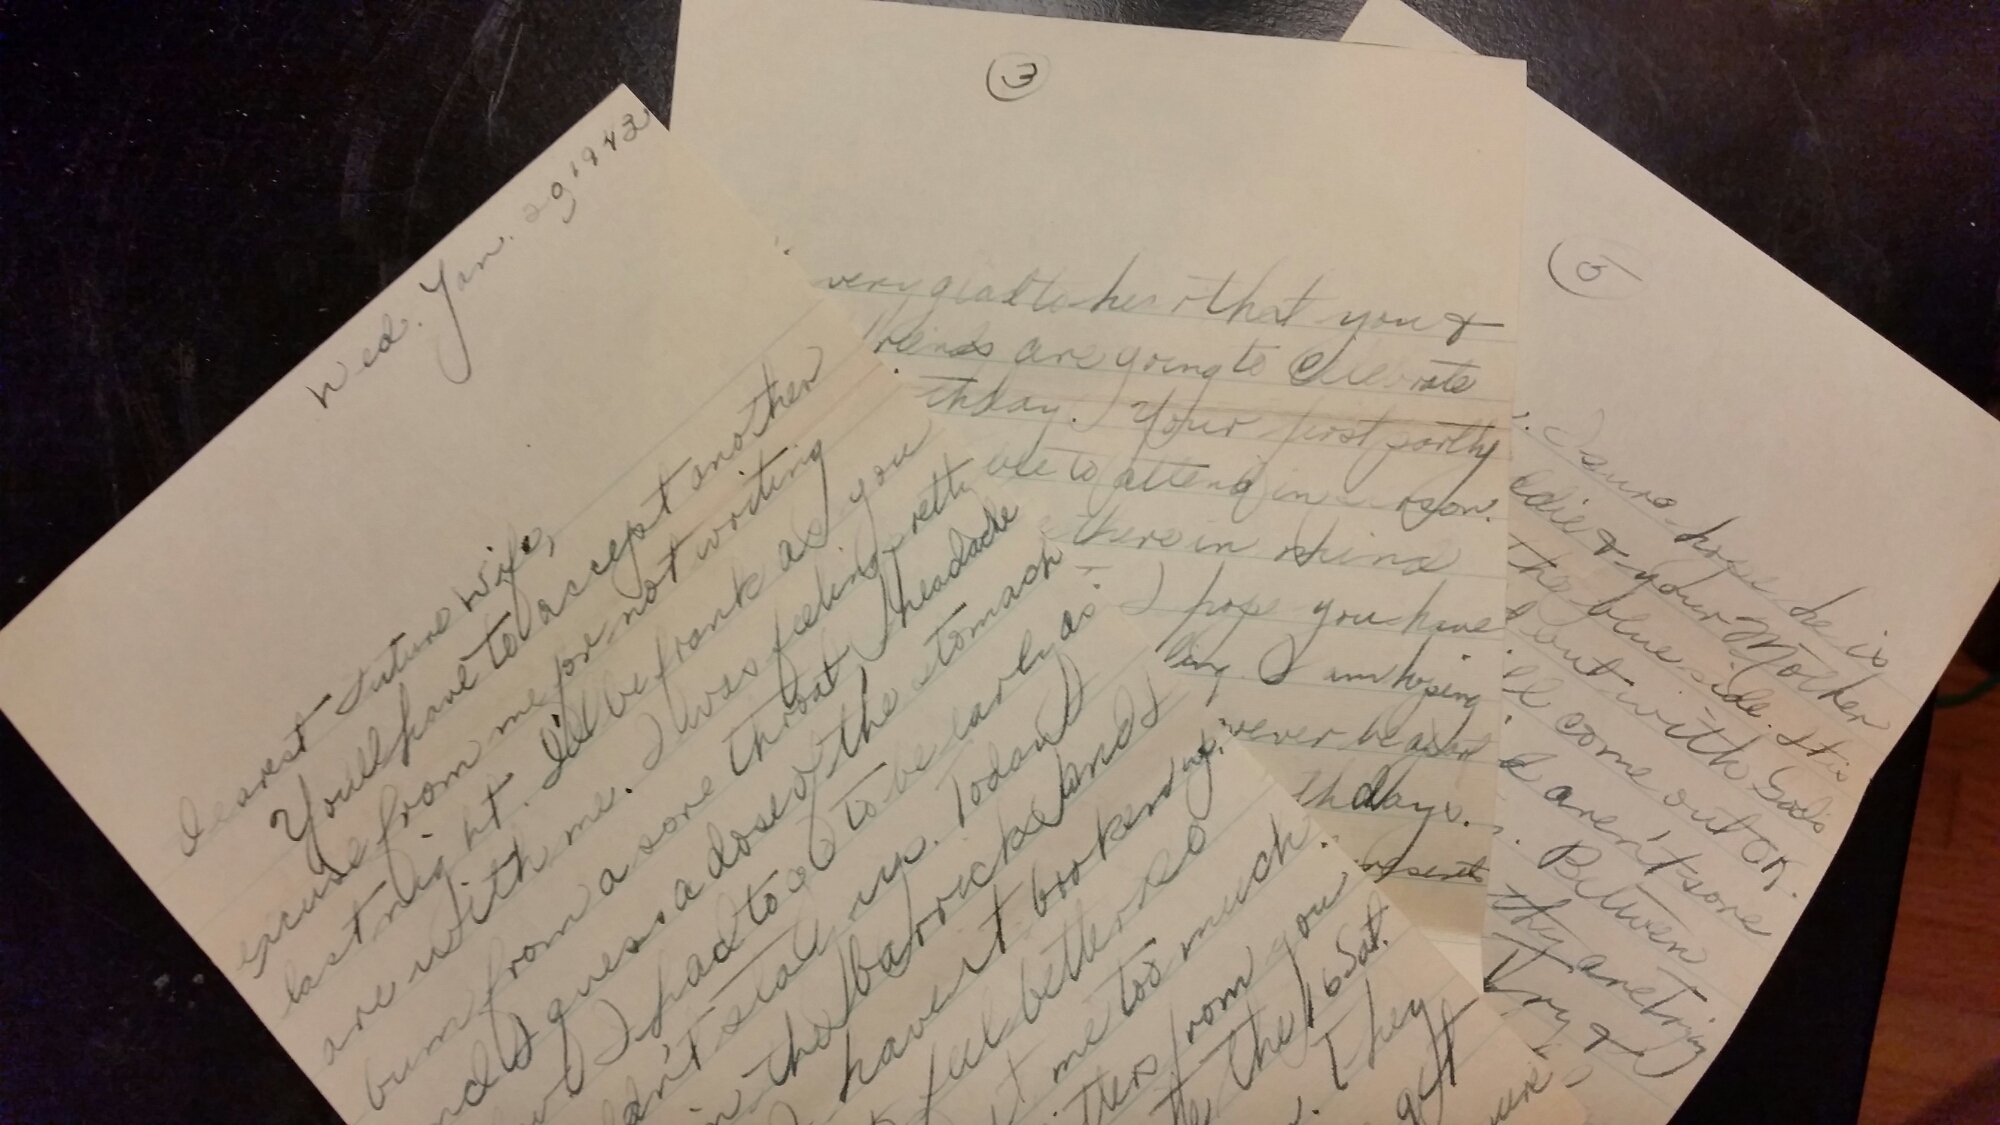 Wed. Jan. 29 1943
Dearest Future Wife,
You'll have to accept another
excuse from me for not writing
last night. I'll be frank as you
are with me. I was feeling prett
bum from a sore throat headache
nd I guess a dose of the stomach
I had to go to bed early as
dn't stay up. Today I
in the barricks and I
haven't book
feel better so
me too much.
tters from you
the 16 Sat.
They
get
3
very glad to hear that you &
friends are going to celebrate
thday. Your first party
ble to attend in person.
there in mind
I hope you have
ling. I am hoping
never be apart
thdays.
resent
5
I sure hope he is
Eddie & your Mother
the blue side. His
out with God's
ill come out OK.
aren't sore
Between
they are trying
try &